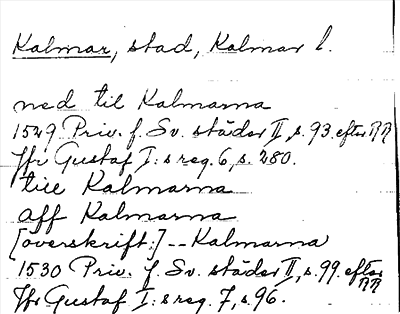 Kalmar, stad, Kalmar l.
ned til Kalmarna
1529 Priv. f. Sv. städer II, s. 93. efter RR
Jfr Gustaf I:s reg. 6, s. 280.
till Kalmarna
aff Kalmarna
[överskrift:] -- Kalmarna
1530 Priv. f. Sv. städer II, s. 99. efter RR
Jfr Gustaf I:s reg. 7, s. 96.